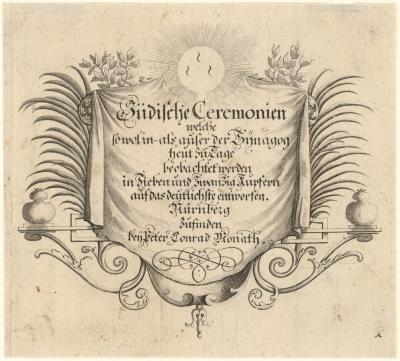 Jüdische Ceremonien
welche
sowol in- als auser der Synagog
heut zu Tage
beobachtet werden
in Sieben und Zwanzig Kupfern
auf das deütlichste entworfen.
Nürnberg
zufinden
bey Peter Conrad Monath.
A